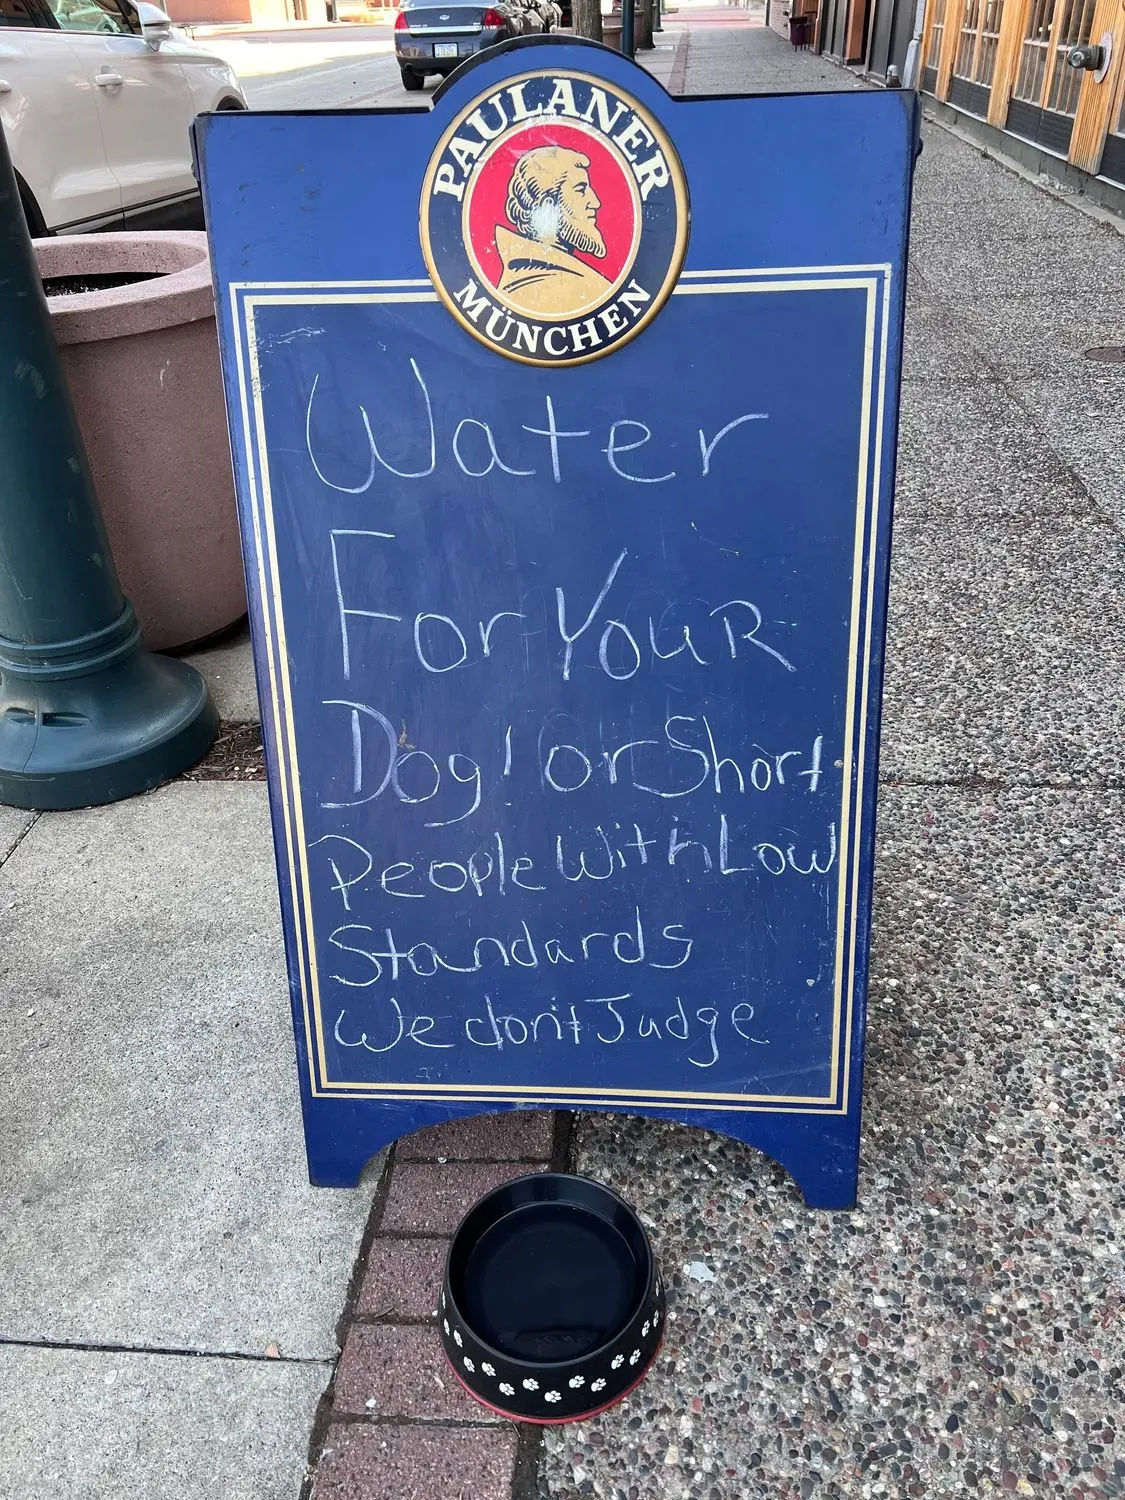 PAULANER
MÜNCHEN
Water
For YouR
Dog! or Short
People With Low
Standards
We don't Judge